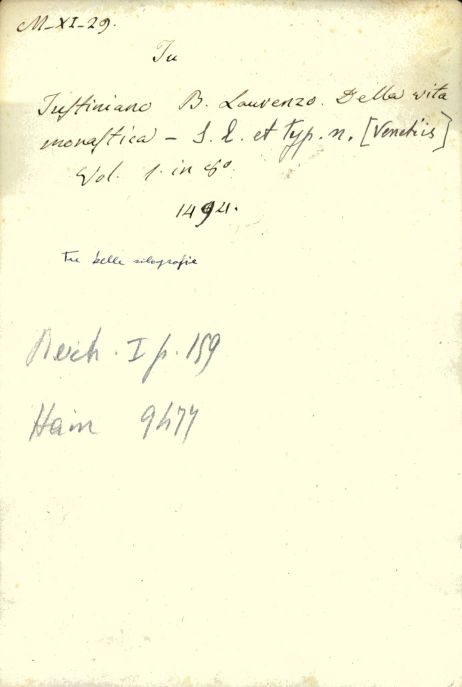 M_XI_29.
Iu
Iustiniano B. Laurenzo. Della vita
monastica – S. L. et typ. n. [Venetiis]
Vol. 1. in 8°.
1494.
Tre belle silografie
Reich. I p. 159
Hain 9477